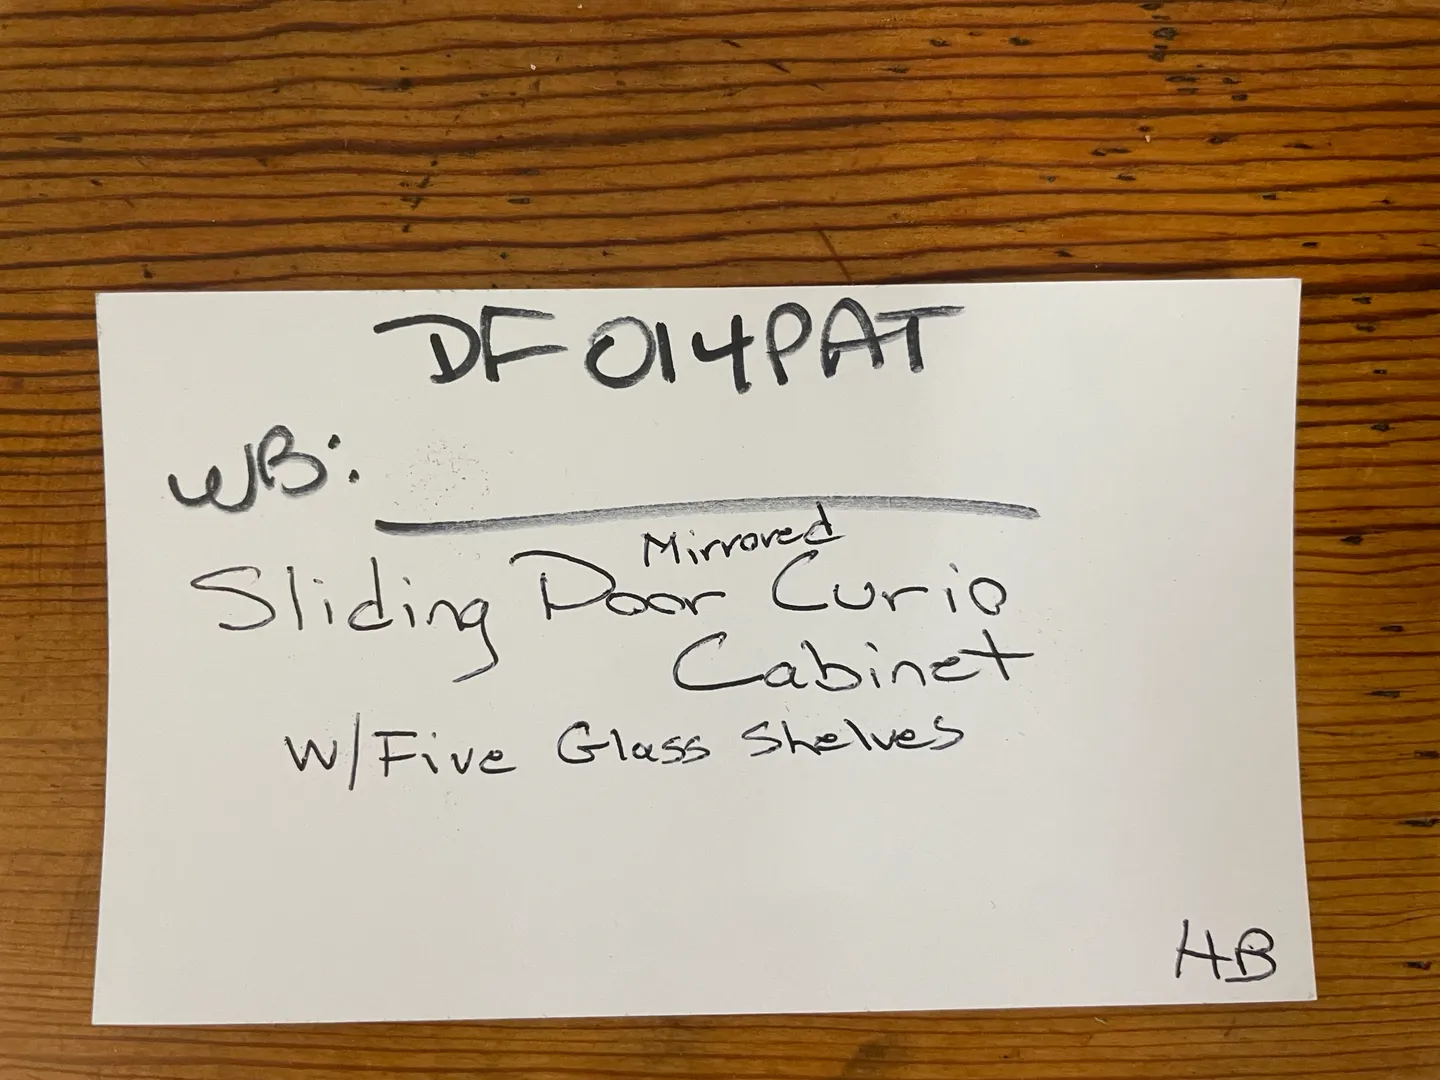 DF014PAT
WB:
Mirrored
Sliding Door Curio
Cabinet
W/Five Glass Shelves
HB